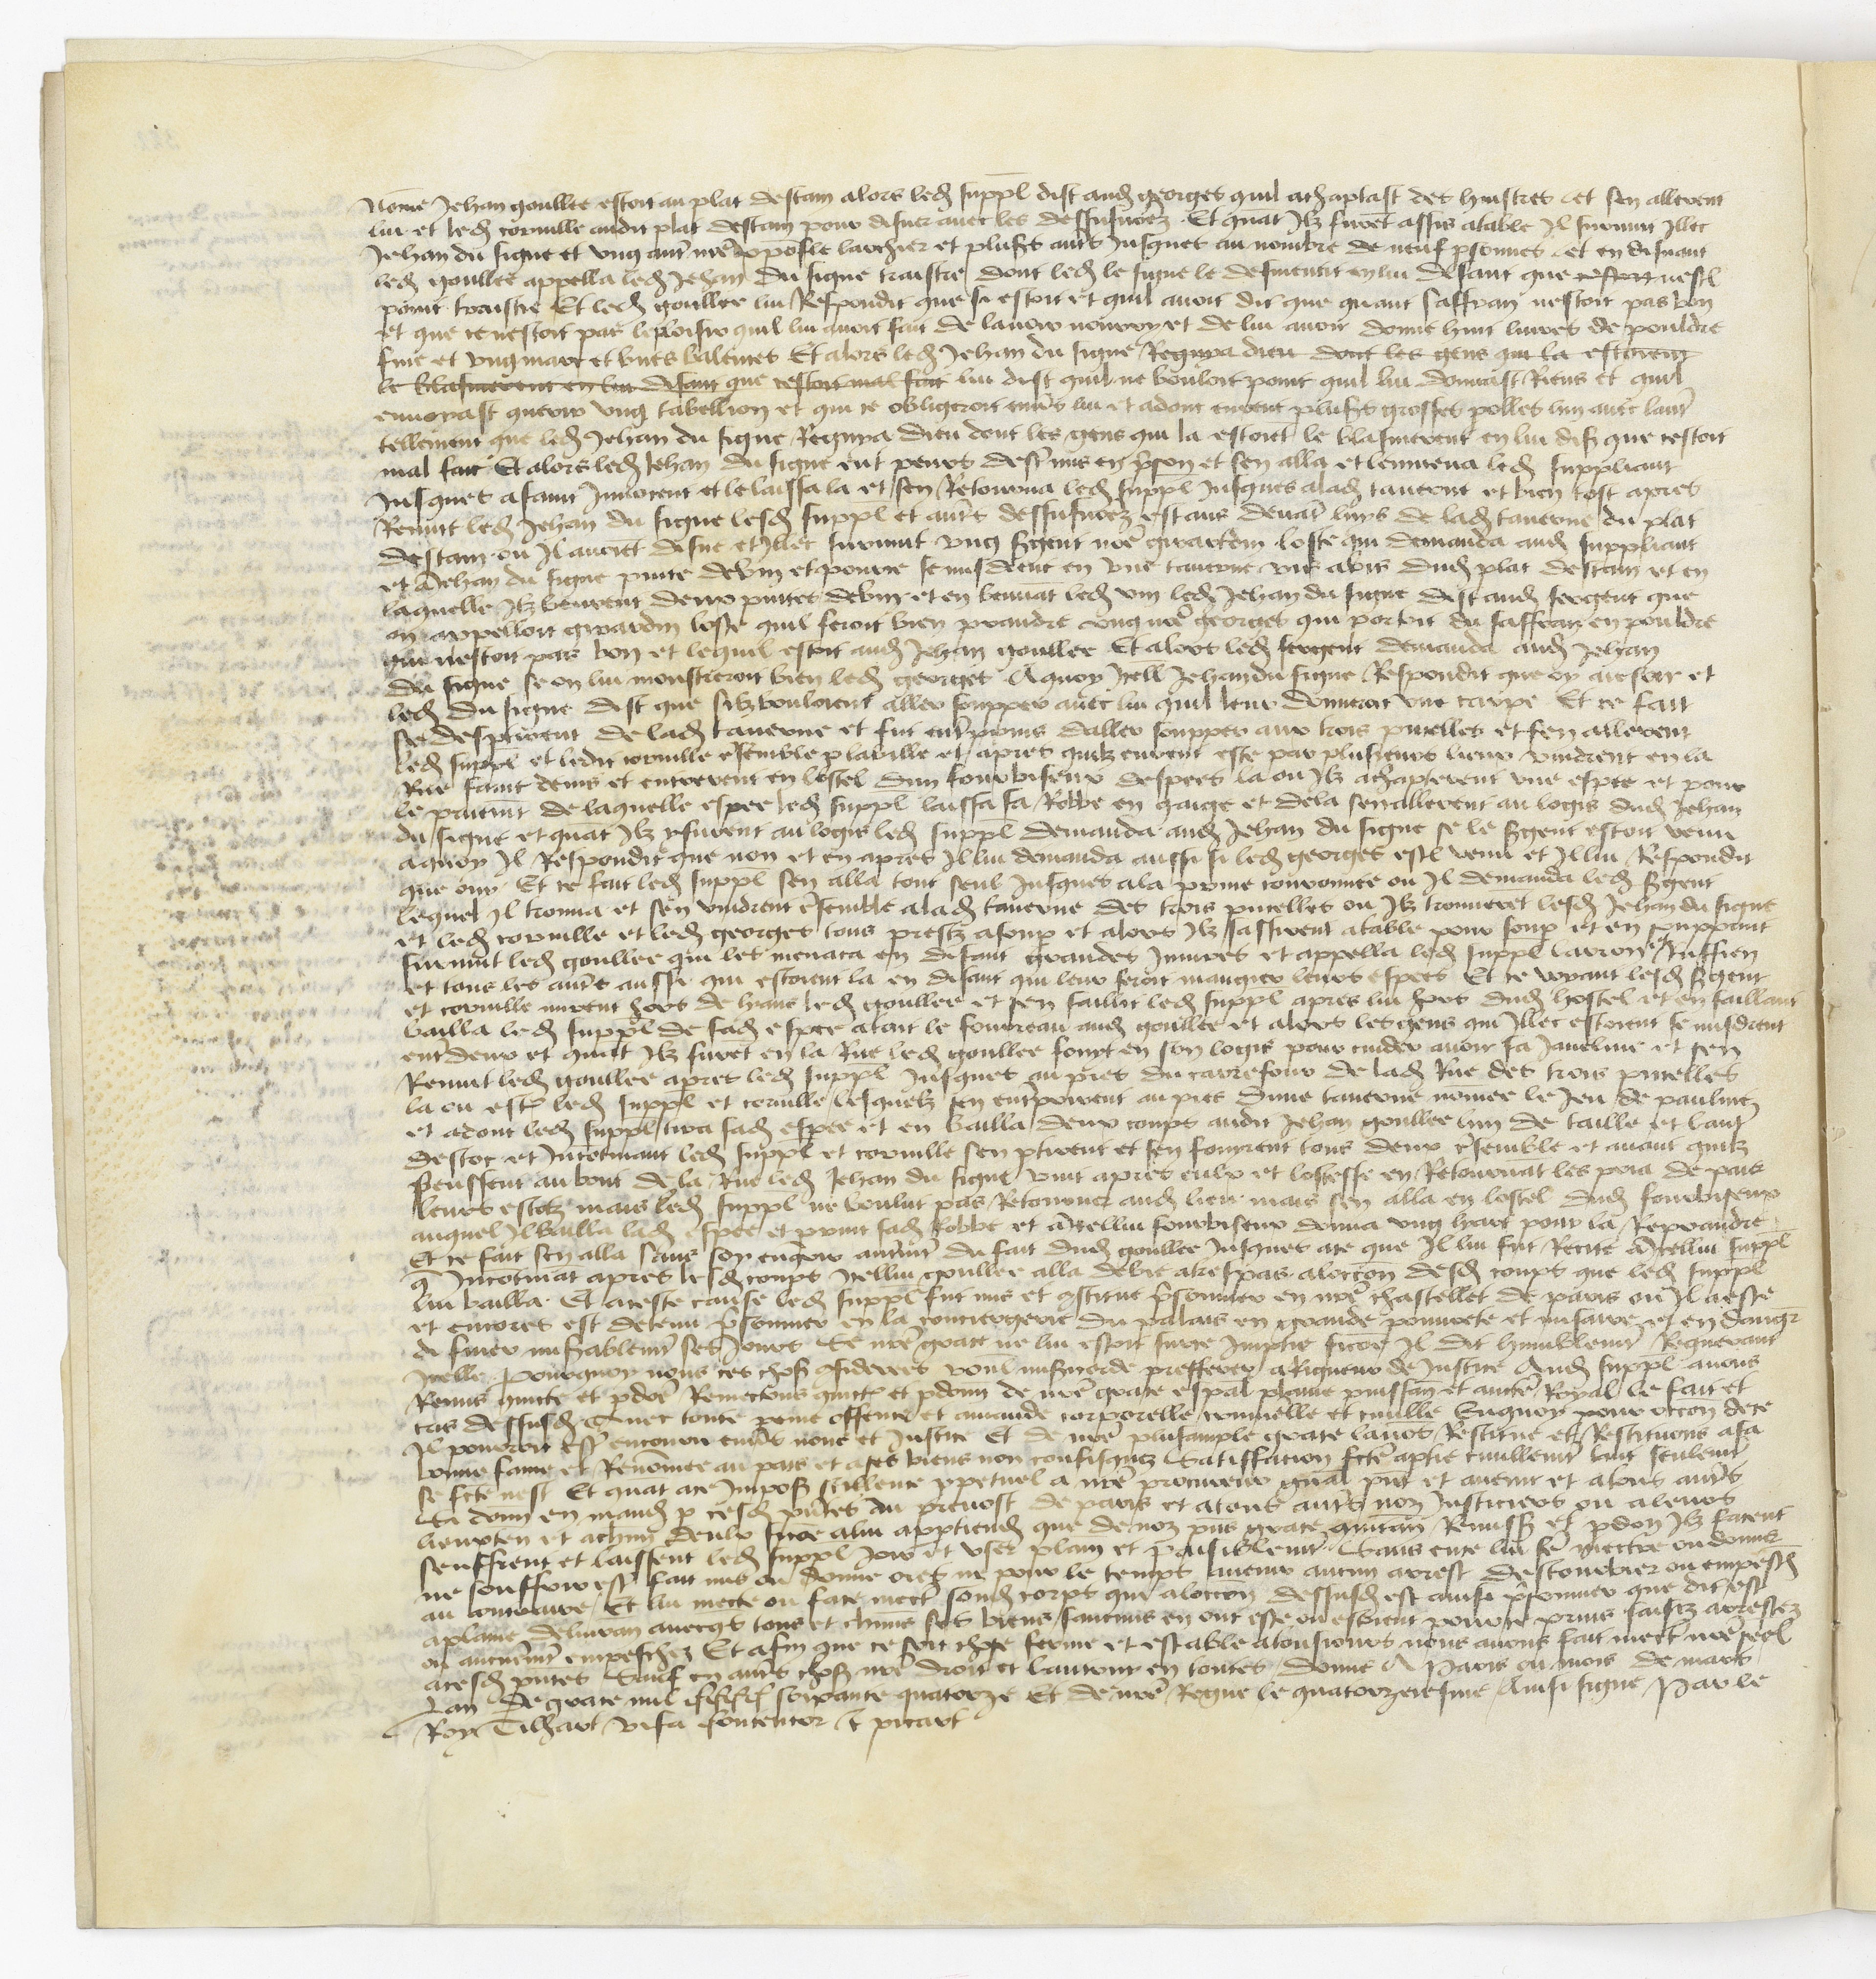 Nome Jehan goullee estoit au plat destain alors led suppl dist aud georges quil achaptast des huistres et sen allerent
lui et led cornille audit plat destain pour disner avec les dessusnomez Et quat Ilz furet assis a table Il survint Illec
Jehan du signe et ung autre nre larchier et plusrs autrs Jusques au nombre de neuf psonnes et en disnant
led goullee appella led Jehan du signe traistre dont led le signe le desmentit en lui disant que nestl
point traistre Et led goullee lui Respondit que si estoit et quil avoit dit que quant saffran nestoit pas bon
et que ce nestoit pas le plaisir quil lui avoit fait de lavoir nourry et de lui avoir donne huit livres de pouldre
fine et ung marc et unes balences Et alors led Jehan du signe Regnya dieu dont les gens qui la estoient
le blasmerent en lui disant que cestoit mal fait lui dist quil ne vouloit point quil lui donnast Riens et quil
envoyast querir ung tabellion et qui se obligeroit envrs lui et adonc eurent plusrs grosses polles lun avec lautr
tellement que led Jehan du signe Regnya dieu dont les gens qui la estoiet le blasmerent en lui dist que cestoit
mal fait Et alors led Jehan du signe eut peurs destr mis en prison et sen alla et lenmena led suppliant
Jusques a saint Innocent et le laissa la et sen Retourna led suppl Jusques a lad taverne et bien tost apres
Revint led Jehan du signe lesd suppl et autrs dessusnomez estans devat luys de lad taverne du plat
destain ou Il avoiet disne et Illec survint ung sergent nre girardin loste qui demanda aud suppliant
et a Jehan du signe pinte de vin et pource se misdrent en une taverne vis a vis dud plat destain et en
laquelle Ilz beurent deux pintes de vin et en beuvat led vin led Jehan du signe dist aud sergent que
on appelloit girardin loste quil feroit bien prandre ung nre georges qui portoit du saffran en pouldre
qui nestoit pas bon et lequel estoit aud Jehan goullee Et alors led sergent demanda aud Jehan
du signe se on lui monstreroit bien led georges A quoy Icell Jehan du signe Respondit que oy au soir et
led du signe dist que silz vouloient aller soupper avec lui quil leur donneroit une carpe Et ce fait
se despartirent de lad taverne et fut entreprins daller soupper aux trois pucelles et sen allerent
led suppl et ledit cornille esemble p la ville et apres quilz eurent este par plusieurs lieux vindrent en la
Rue saint denis et entrerent en lostel dun fourbisseur despees la ou Ilz achapterent une espee et pour
le paiemt de laquelle espee led suppl laissa sa Robbe en gaige et de la sen allerent au logis dud Jehan
du signe et quat Ilz y furent au logis led suppl demanda aud Jehan du signe se le sergent estoit venu
a quoy Il Respondit que non et en apres Il lui demanda aussi si led georges estl venu et Il lui Respondit
que ouy Et ce fait led suppl sen alla tout seul Jusques a la pome couronnee ou Il demanda led sergent
lequel Il trouva et sen vindrent esemble a lad taverne des trois pucelles ou Ilz trouveret lesd Jehan du signe
et led cornille et led georges tous prestz a soup et alors Ilz sassirent a table pour soup et en souppant
survint led goullee qui les menaca en disant grandes Injures et appella led suppl larron et Ruffien
et tous les autrs aussi qui estoient la en disant qui leur feroit mangier leurs espees Et ce voyant lesd sergent
et cornille mirent hors de leans led goullee et sen saillit led suppl apres lui hors dud hostel et en saillant
bailla led suppl de sad espee atout le fourreau aud goullee et alors les gens qui Illec estoient se misdrent
entdeux et quat Ilz furet en la Rue led goullee fouyt en son logis pour cuider avoir sa Javeline et sen
Revint led goullee apres led suppl Jusques au pres du carrefour de lad Rue des trois pucelles
la ou estl led suppl et cornille lesquelz sen entrerent au pres dune taverne nomee le Jeu de paulme
et adonc led suppl tira sad espee et en bailla deux coups audit Jehan goullee lun de taille et lautr
destoc et Incotinant led suppl et cornille sen ptirent et sen fouyrent tous deux esemble et avant quilz
feussent au bout de la Rue led Jehan du signe vint apres eulx et lostesse en Retournat les pria de paier
leurs escotz mais led suppl ne voulut pas Retourner aud lieu mais sen alla en lostel dud fourbisseur
auquel Il bailla lad espee et print sad Robbe et a Icellui fourbisseur donna ung liart pour la Reprandre
Et ce fait sen alla sans soy enqrir autremt du fait dud goullee Jusques ace que Il lui fut Recite a Icellui suppl
q Incotinat apres lesd coups Icellui goullee alla de vie a trespas a loccon desd coups que led suppl
lui bailla Et a ceste cause led suppl fut mis et costitue prisonnier en nre chastellet de paris ou Il a este
et encores est detenu prisonnier en la conciergerie du palais en grande pouvrete et misere et en dangr
di finer misablemt ses Jours Se nre grace ne lui estoit surce Imptie sicoe Il dit humblemt Requerant
Icelle Pourquoy nous ces chos considerees voul misericorde prefferer a Rigueur de Justice Aud suppl avons
Remis quicte et pdoe Remectons quictos et pdonn de nre grace espal plaine puissan et aucte Royal le fait et
cas dessusd Avec toute peine offense et amande corporelle criminelle et civille Enquoy pour occon de ce
Il pourroit estr encouru envrs nous et Justice Et de nre plus ample grace lavos Restitue et Restituons a sa
bonne fame et Renomee au pais et a ses biens non confisquez Satisffacion fcte a ptie civillemt tant seulemt
se fcte nest Et quat ace Imposs scillence ppetuel a nre procureur gnal pnt et avenir et a tous autrs
Si donn en mand p cesd pntes au prevost de paris et a tous autrs noz Justiciers ou a leurs
lieuxten et a chun deulx sicoe a lui apptiendr que de noz pns grace quictan Remiss et pdon Ilz facent
seuffrent et laissent led suppl Joir et user plain et paisiblemt Sans ence lui fe mectre ou donner
ne souffrir estr fait mis ou donne ores ne pour le temps avenir aucun arrest destourbier ou empesch
au contraire Et lui mecte ou face mectr sond corps qui a loccon dessusd est ainsi prisonnier que dit est
a plaine delivran avecqs tous et chune ses biens saucuns en ont este ou estoient pour ce prins saisiz arrestez
ou aucunemt empeschez Et afin que ce soit chose ferme et estable a tousjours nous avons fait mectr nre seel
a cesd pntes Sauf en autrs chos nre droit et lautruy en toutes Donne A Paris ou mois de mars
Lan de grace mil CCCC soixante quatorze Et de nre Regne le quatorzeiesme Ainsi signe Par le
Roy Tilhart Visa Contentor T picart